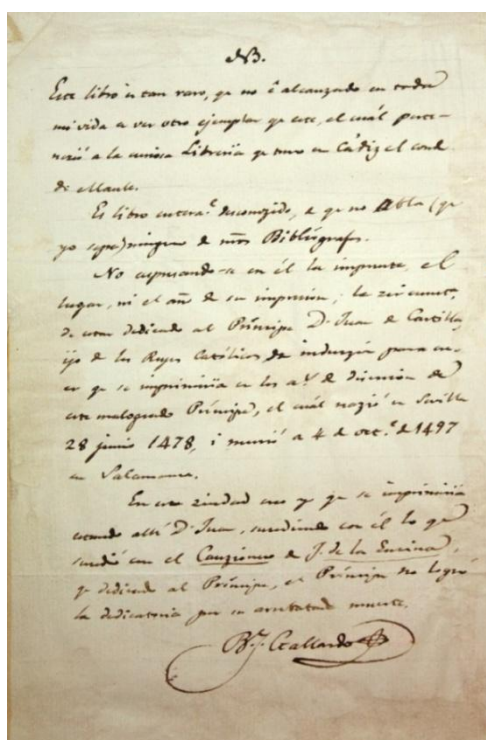 NB.
Este libro es tan raro, qe no é alcanzado en toda
mi vida a ver otro ejemplar qe este, el cuál perte-
neció a la curiosa Librería qe tuvo en Cádiz el conde
de Maule.
Es libro enteramte desconozido, de qe no abla (qe
yo sepa) ninguno de nros Bibliógrafos.
No espresando-se en él la imprenta, el
lugar, ni el año de su impresion; la zircunst.
de estar dedicado al Príncipe Dn Juan de Castilla,
ijo de los Reyes Católicos, da induzgia para cre-
er qe se imprimiria en los as de
este malogrado Príncipe, el cuál nazió en Sevilla
28 junio 1478, i murió a 4 de oct.e de 1497
en Salamanca.
En esta ziudad creo yo qe se imprimiria
estando allí Dn Juan, suzediendo con él lo qe
suzedió con el Canzionero de J. de la Enzina,
qe dedicado al Príncipe, el Príncipe no logró
la dedicatoria por su arrebatada muerte.
B.e J. Gallardo